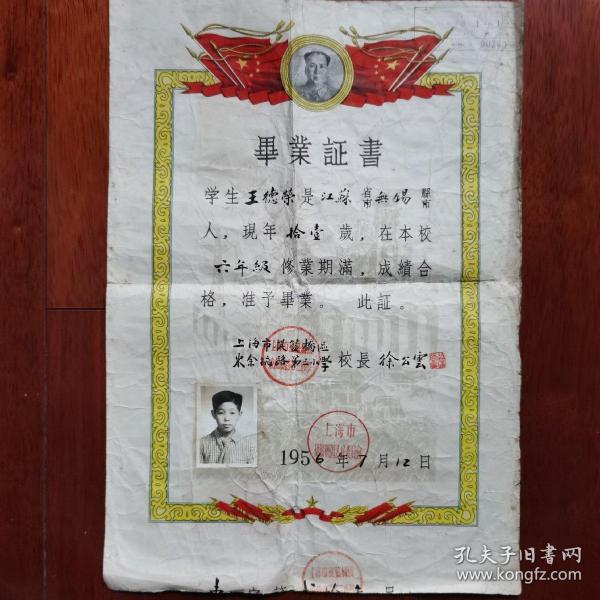 畢業証書
学生王德榮是江蘇省市無錫縣市
人，現年拾壹歲，在本校
六年級修業期滿，成績合
格，准予畢業。此証。
上海市提籃橋區
東余杭路第三小學 校長 徐公雲
上海市
1956年7月12日
孔夫子旧書网
www.kongfz.com